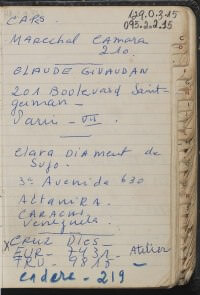 129.0.3.15
095.2.2.15
CARS.
MARECHAL CAMARA
210.
CLAUDE GIVAUDAN
201 Boulevard Saint-
german -
Paris - VII.
Clara DIAMENT de
Sujo.
3ª Avenida 630
ALTAMIRA.
CARACAS
Venezuela.
X CRUZ DIES -
EUR - 7431 - Atelier
TRU - 9815 -
cadere - 219